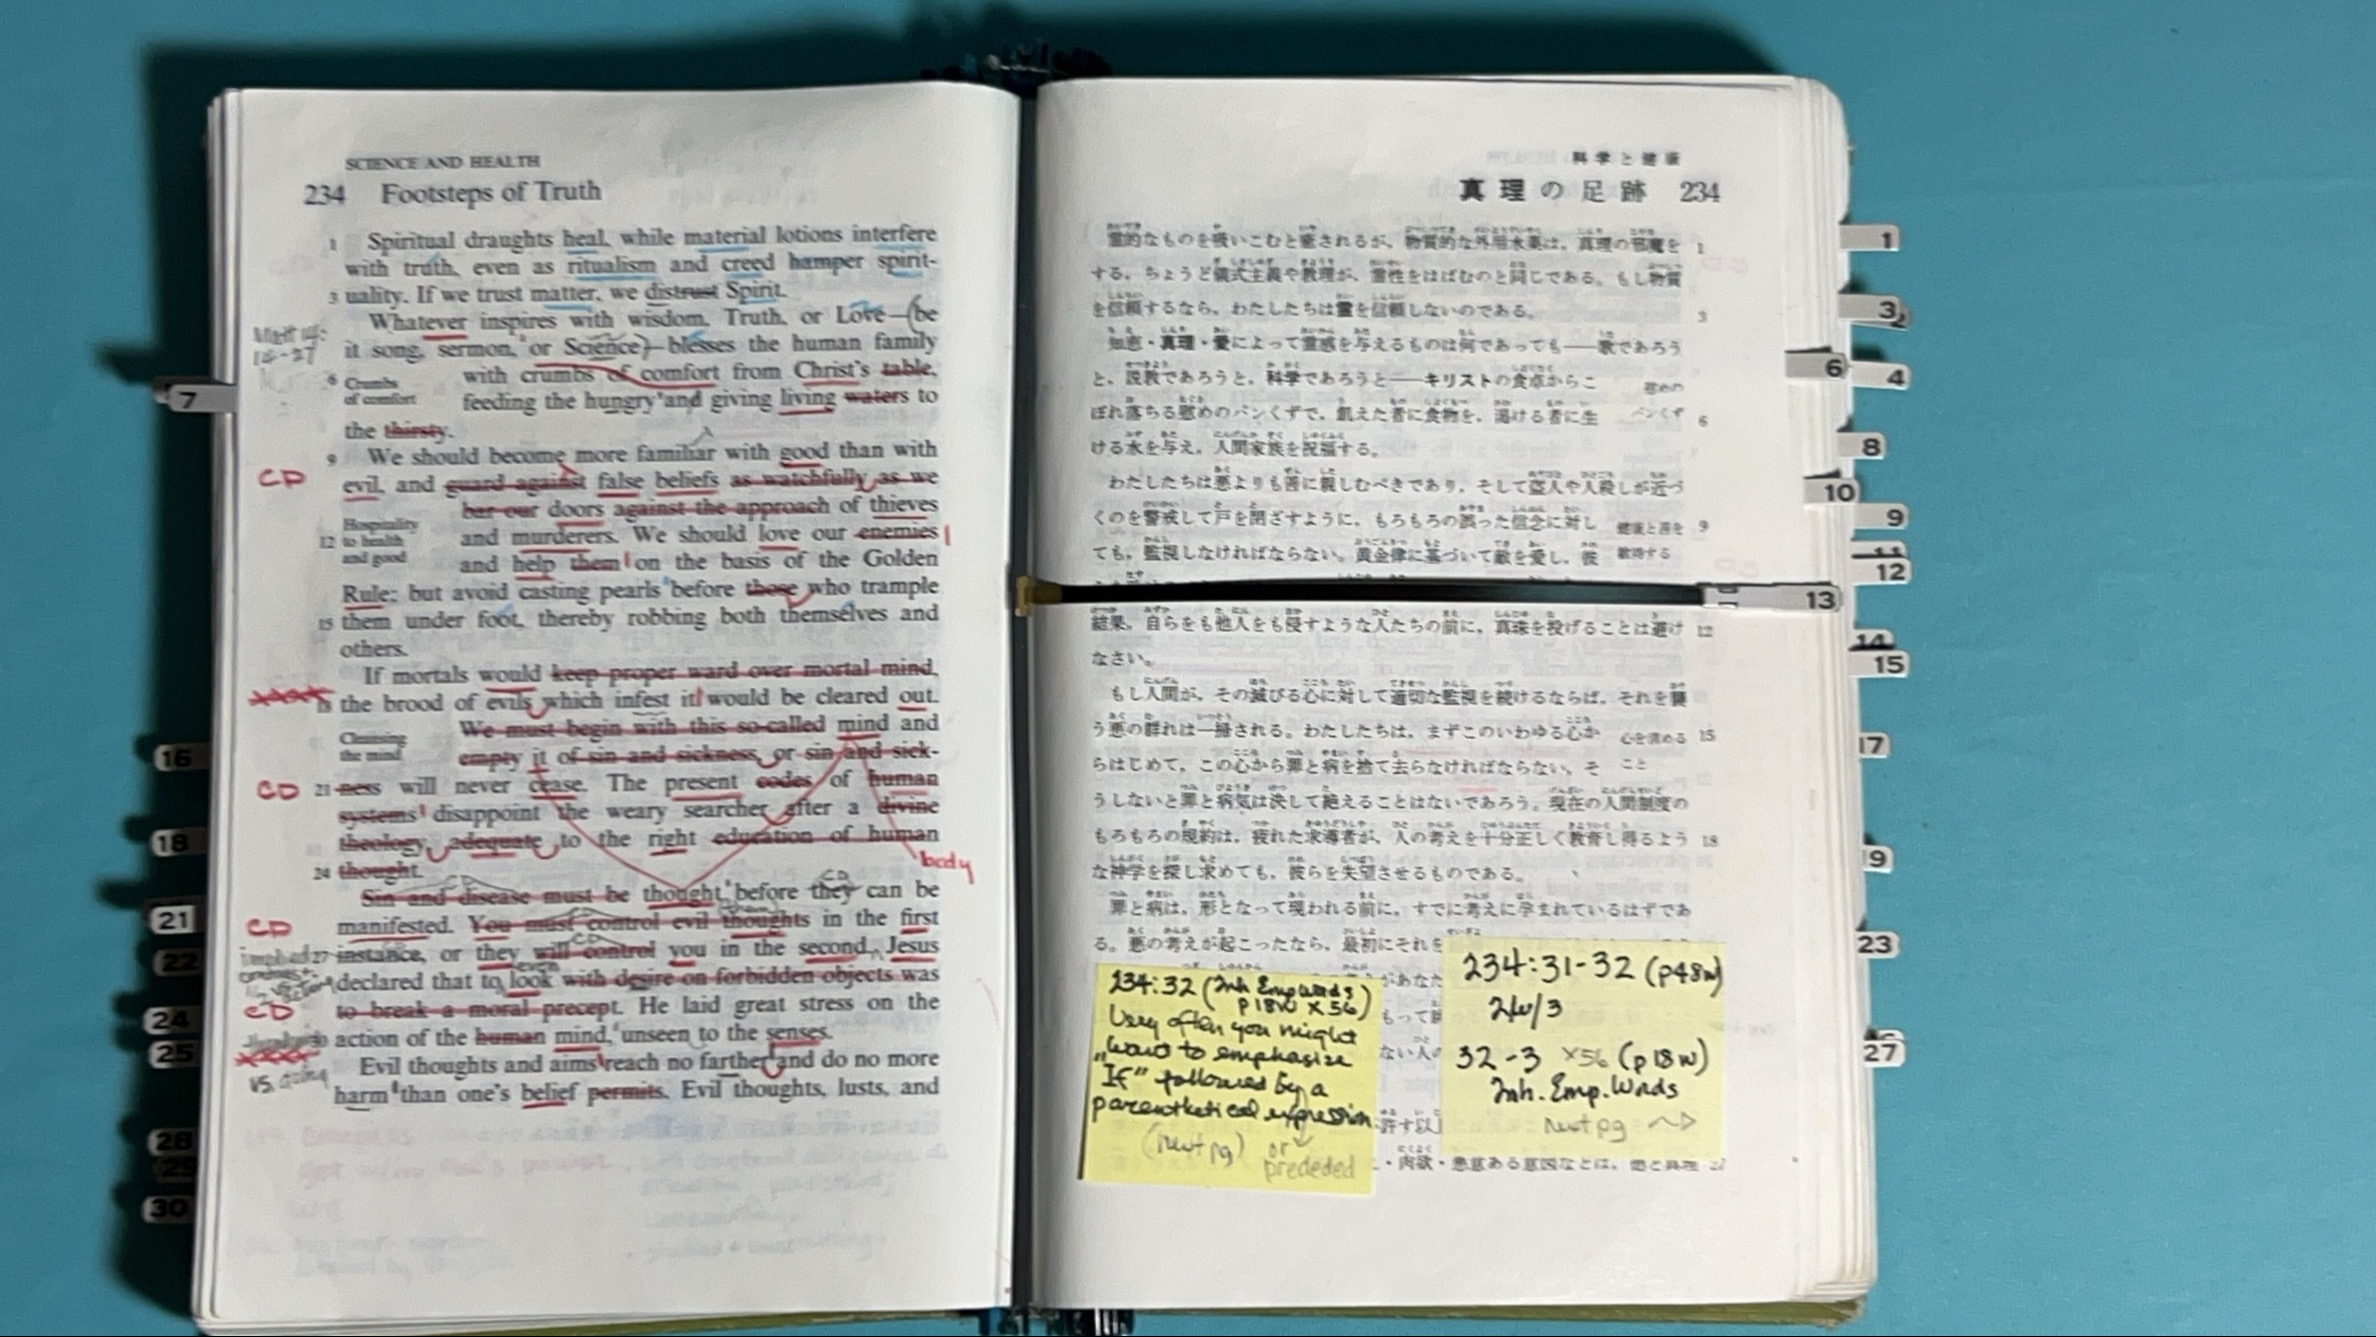 SCIENCE AND HEALTH
234 Footsteps of Truth
1 Spiritual draughts heal, while material lotions interfere
with truth, even as ritualism and creed hamper spirit-
3 uality. If we trust matter, we distrust Spirit.
Whatever inspires with wisdom, Truth, or Love—(be
it song, sermon, or Science)—blesses the human family
6 Crumbs of comfort
with crumbs of comfort from Christ's table,
feeding the hungry and giving living waters to
the thirsty.
9 We should become more familiar with good than with
CD
evil, and guard against false beliefs as watchfully as we
bar our doors against the approach of thieves
12 Hospitality to health and good
and murderers. We should love our enemies
and help them on the basis of the Golden
Rule; but avoid casting pearls before those who trample
15 them under foot, thereby robbing both themselves and
others.
If mortals would keep proper ward over mortal mind,
the brood of evils which infest it would be cleared out.
Cleansing the mind
We must begin with this so-called mind and
empty it of sin and sickness, or sin and sick-
CD
21 ness will never cease. The present codes of human
systems disappoint the weary searcher after a divine
theology, adequate to the right education of human
body
24 thought.
Sin and disease must be thought before they can be
CD
manifested. You must control evil thoughts in the first
27 instance, or they will control you in the second. Jesus
even
declared that to look with desire on forbidden objects was
CD
to break a moral precept. He laid great stress on the
30 action of the human mind, unseen to the senses.
Evil thoughts and aims reach no farther and do no more
harm than one's belief permits. Evil thoughts, lusts, and
科学と健康
真理の足跡 234
霊的なものを吸いこむと癒されるが、物質的な外用水薬は、真理の邪魔を 1
する、ちょうど儀式主義や教理が、霊性をはばむのと同じである。もし物質
を信頼するなら、わたしたちは霊を信頼しないのである。 3
知恵・真理・愛によって霊感を与えるものは何であっても——歌であろう
と、説教であろうと、科学であろうと——キリストの食卓からこ 慰めの
ぼれ落ちる慰めのパンくずで、飢えた者に食物を、渇ける者に生 パンくず 6
ける水を与え、人間家族を祝福する。
わたしたちは悪よりも善に親しむべきであり、そして盗人や人殺しが近づ
くのを警戒して戸を閉ざすように、もろもろの誤った信念に対し 健康と善を 9
ても、監視しなければならない。黄金律に基づいて敵を愛し、彼 歓待する
結果、自らをも他人をも侵すような人たちの前に、真珠を投げることは避け 12
なさい。
もし人間が、その滅びる心に対して適切な監視を続けるならば、それを襲
う悪の群れは一掃される。わたしたちは、まずこのいわゆる心か 心を清める 15
らはじめて、この心から罪と病を捨て去らなければならない、そ こと
うしないと罪と病気は決して絶えることはないであろう。現在の人間制度の
もろもろの規約は、疲れた求導者が、人の考えを十分正しく教育し得るよう 18
な神学を探し求めても、彼らを失望させるものである。
罪と病は、形となって現われる前に、すでに考えに孕まれているはずであ
る。悪の考えが起こったなら、最初にそれを
があなた
もって
ない人の
許す以
・肉欲・悪意ある意図などは、 27
234:32 (Inh Emp Words
p18w x56)
Very often you might
want to emphasize
"If" followed by a
parenthetical expression
(next pg) or
preceded
234:31-32 (p48w)
2w/3
32-3 x56 (p18w)
Inh. Emp. Words
next pg
7
16
18
21
22
24
25
28
29
30
1
3
2
6
4
8
10
9
11
12
13
14
15
17
19
23
27